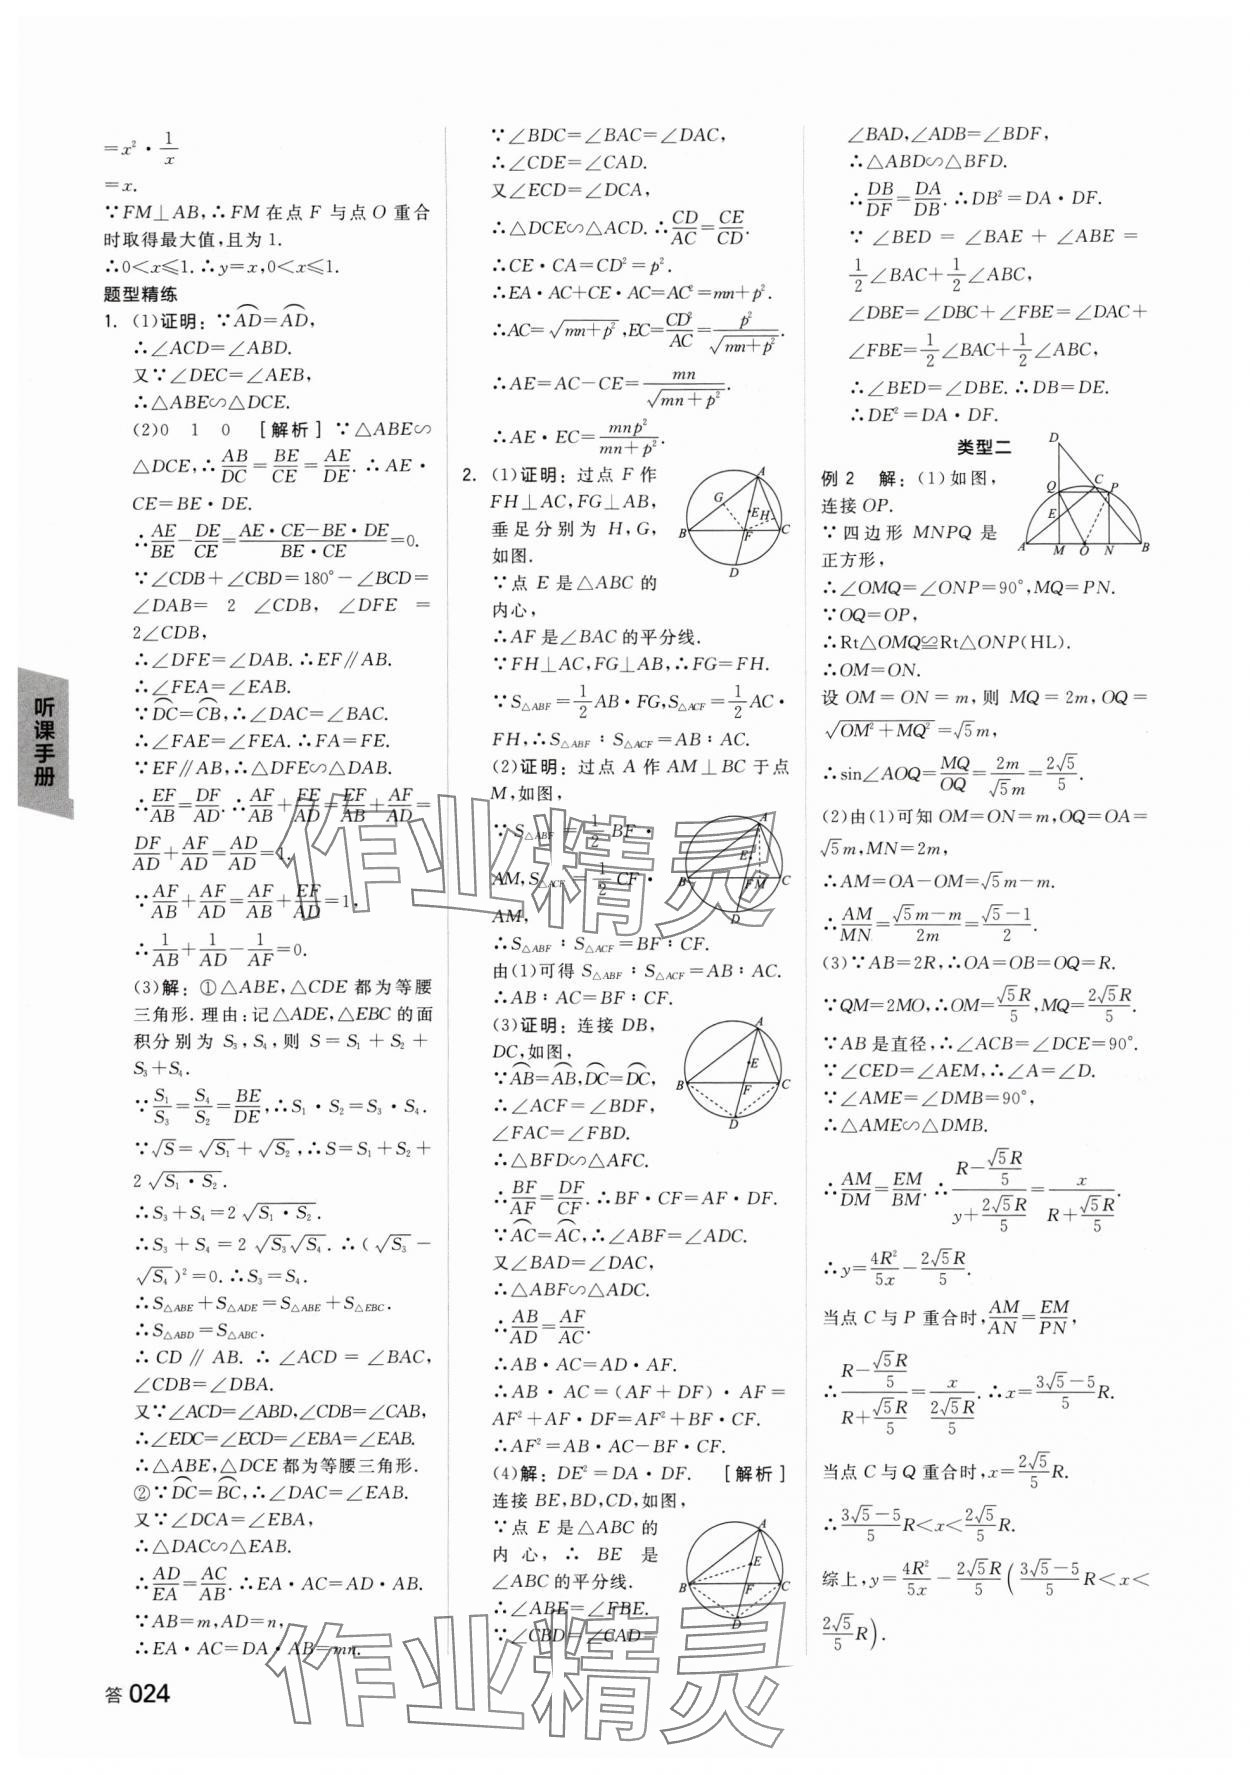 =x²·1/x
=x.
∵FM⊥AB,∴FM在点F与点O重合
时取得最大值,且为1.
∴0<x≤1.∴y=x,0<x≤1.
题型精练
1. (1)证明:∵⌒AD=⌒AD,
∴∠ACD=∠ABD.
又∵∠DEC=∠AEB,
∴△ABE∽△DCE.
(2)0 1 0 [解析]∵△ABE∽
△DCE,∴AB/DC=BE/CE=AE/DE.∴AE·
CE=BE·DE.
∴AE/BE-DE/CE=(AE·CE-BE·DE)/(BE·CE)=0.
∵∠CDB+∠CBD=180°-∠BCD=
∠DAB=2∠CDB,∠DFE=
2∠CDB,
∴∠DFE=∠DAB.∴EF∥AB.
∴∠FEA=∠EAB.
∵⌒DC=⌒CB,∴∠DAC=∠BAC.
∴∠FAE=∠FEA.∴FA=FE.
∵EF∥AB,∴△DFE∽△DAB.
∴EF/AB=DF/AD.∴AF/AB+FE/AD=EF/AB+AF/AD=
DF/AD+AF/AD=AD/AD=1.
∵AF/AB+AF/AD=AF/AB+EF/AD=1,
∴1/AB+1/AD-1/AF=0.
(3)解:①△ABE,△CDE都为等腰
三角形.理由:记△ADE,△EBC的面
积分别为S₃,S₄,则S=S₁+S₂+
S₃+S₄.
∵S₁/S₃=S₄/S₂=BE/DE,∴S₁·S₂=S₃·S₄.
∵√S=√S₁+√S₂,∴S=S₁+S₂+
2√(S₁·S₂).
∴S₃+S₄=2√(S₁·S₂).
∴S₃+S₄=2√S₃√S₄.∴(√S₃-
√S₄)²=0.∴S₃=S₄.
∴S△ABE+S△ADE=S△ABE+S△EBC.
∴S△ABD=S△ABC.
∴CD∥AB.∴∠ACD=∠BAC,
∠CDB=∠DBA.
又∵∠ACD=∠ABD,∠CDB=∠CAB,
∴∠EDC=∠ECD=∠EBA=∠EAB.
∴△ABE,△DCE都为等腰三角形.
②∵⌒DC=⌒BC,∴∠DAC=∠EAB.
又∵∠DCA=∠EBA,
∴△DAC∽△EAB.
∴AD/EA=AC/AB.∴EA·AC=AD·AB.
∵AB=m,AD=n,
∴EA·AC=DA·AB=mn.
∵∠BDC=∠BAC=∠DAC,
∴∠CDE=∠CAD.
又∠ECD=∠DCA,
∴△DCE∽△ACD.∴CD/AC=CE/CD.
∴CE·CA=CD²=p².
∴EA·AC+CE·AC=AC²=mn+p².
∴AC=√(mn+p²),EC=CD²/AC=p²/√(mn+p²).
∴AE=AC-CE=mn/√(mn+p²).
∴AE·EC=mnp²/(mn+p²).
2. (1)证明:过点F作
FH⊥AC,FG⊥AB,
垂足分别为H,G,
如图.
∵点E是△ABC的
内心,
∴AF是∠BAC的平分线.
∵FH⊥AC,FG⊥AB,∴FG=FH.
∵S△ABF=1/2AB·FG,S△ACF=1/2AC·
FH,∴S△ABF∶S△ACF=AB∶AC.
(2)证明:过点A作AM⊥BC于点
M,如图,
∵S△ABF=1/2BF·
AM,S△ACF=1/2CF·
AM,
∴S△ABF∶S△ACF=BF∶CF.
由(1)可得S△ABF∶S△ACF=AB∶AC.
∴AB∶AC=BF∶CF.
(3)证明:连接DB,
DC,如图,
∵⌒AB=⌒AB,⌒DC=⌒DC,
∴∠ACF=∠BDF,
∠FAC=∠FBD.
∴△BFD∽△AFC.
∴BF/AF=DF/CF.∴BF·CF=AF·DF.
∵⌒AC=⌒AC,∴∠ABF=∠ADC.
又∠BAD=∠DAC,
∴△ABF∽△ADC.
∴AB/AD=AF/AC.
∴AB·AC=AD·AF.
∴AB·AC=(AF+DF)·AF=
AF²+AF·DF=AF²+BF·CF.
∴AF²=AB·AC-BF·CF.
(4)解:DE²=DA·DF. [解析]
连接BE,BD,CD,如图,
∵点E是△ABC的
内心,∴BE是
∠ABC的平分线.
∴∠ABE=∠FBE.
∵∠CBD=∠CAD=
∠BAD,∠ADB=∠BDF,
∴△ABD∽△BFD.
∴DB/DF=DA/DB.∴DB²=DA·DF.
∵∠BED=∠BAE+∠ABE=
1/2∠BAC+1/2∠ABC,
∠DBE=∠DBC+∠FBE=∠DAC+
∠FBE=1/2∠BAC+1/2∠ABC,
∴∠BED=∠DBE.∴DB=DE.
∴DE²=DA·DF.
类型二
例2 解:(1)如图,
连接OP.
∵四边形MNPQ是
正方形,
∴∠OMQ=∠ONP=90°,MQ=PN.
∵OQ=OP,
∴Rt△OMQ≌Rt△ONP(HL).
∴OM=ON.
设OM=ON=m,则MQ=2m,OQ=
√(OM²+MQ²)=√5m,
∴sin∠AOQ=MQ/OQ=2m/√5m=2√5/5.
(2)由(1)可知OM=ON=m,OQ=OA=
√5m,MN=2m,
∴AM=OA-OM=√5m-m.
∴AM/MN=(√5m-m)/2m=(√5-1)/2.
(3)∵AB=2R,∴OA=OB=OQ=R.
∵QM=2MO,∴OM=√5R/5,MQ=2√5R/5.
∵AB是直径,∴∠ACB=∠DCE=90°.
∵∠CED=∠AEM,∴∠A=∠D.
∵∠AME=∠DMB=90°,
∴△AME∽△DMB.
∴AM/DM=EM/BM.∴(R-√5R/5)/(y+2√5R/5)=x/(R+√5R/5).
∴y=4R²/5x-2√5R/5.
当点C与P重合时,AM/AN=EM/PN,
∴(R-√5R/5)/(R+√5R/5)=x/(2√5R/5).∴x=(3√5-5)/5R.
当点C与Q重合时,x=2√5/5R.
∴(3√5-5)/5R<x<2√5/5R.
综上,y=4R²/5x-2√5R/5((3√5-5)/5R<x<
2√5/5R).
听课手册
答024
作业精灵
作业精灵